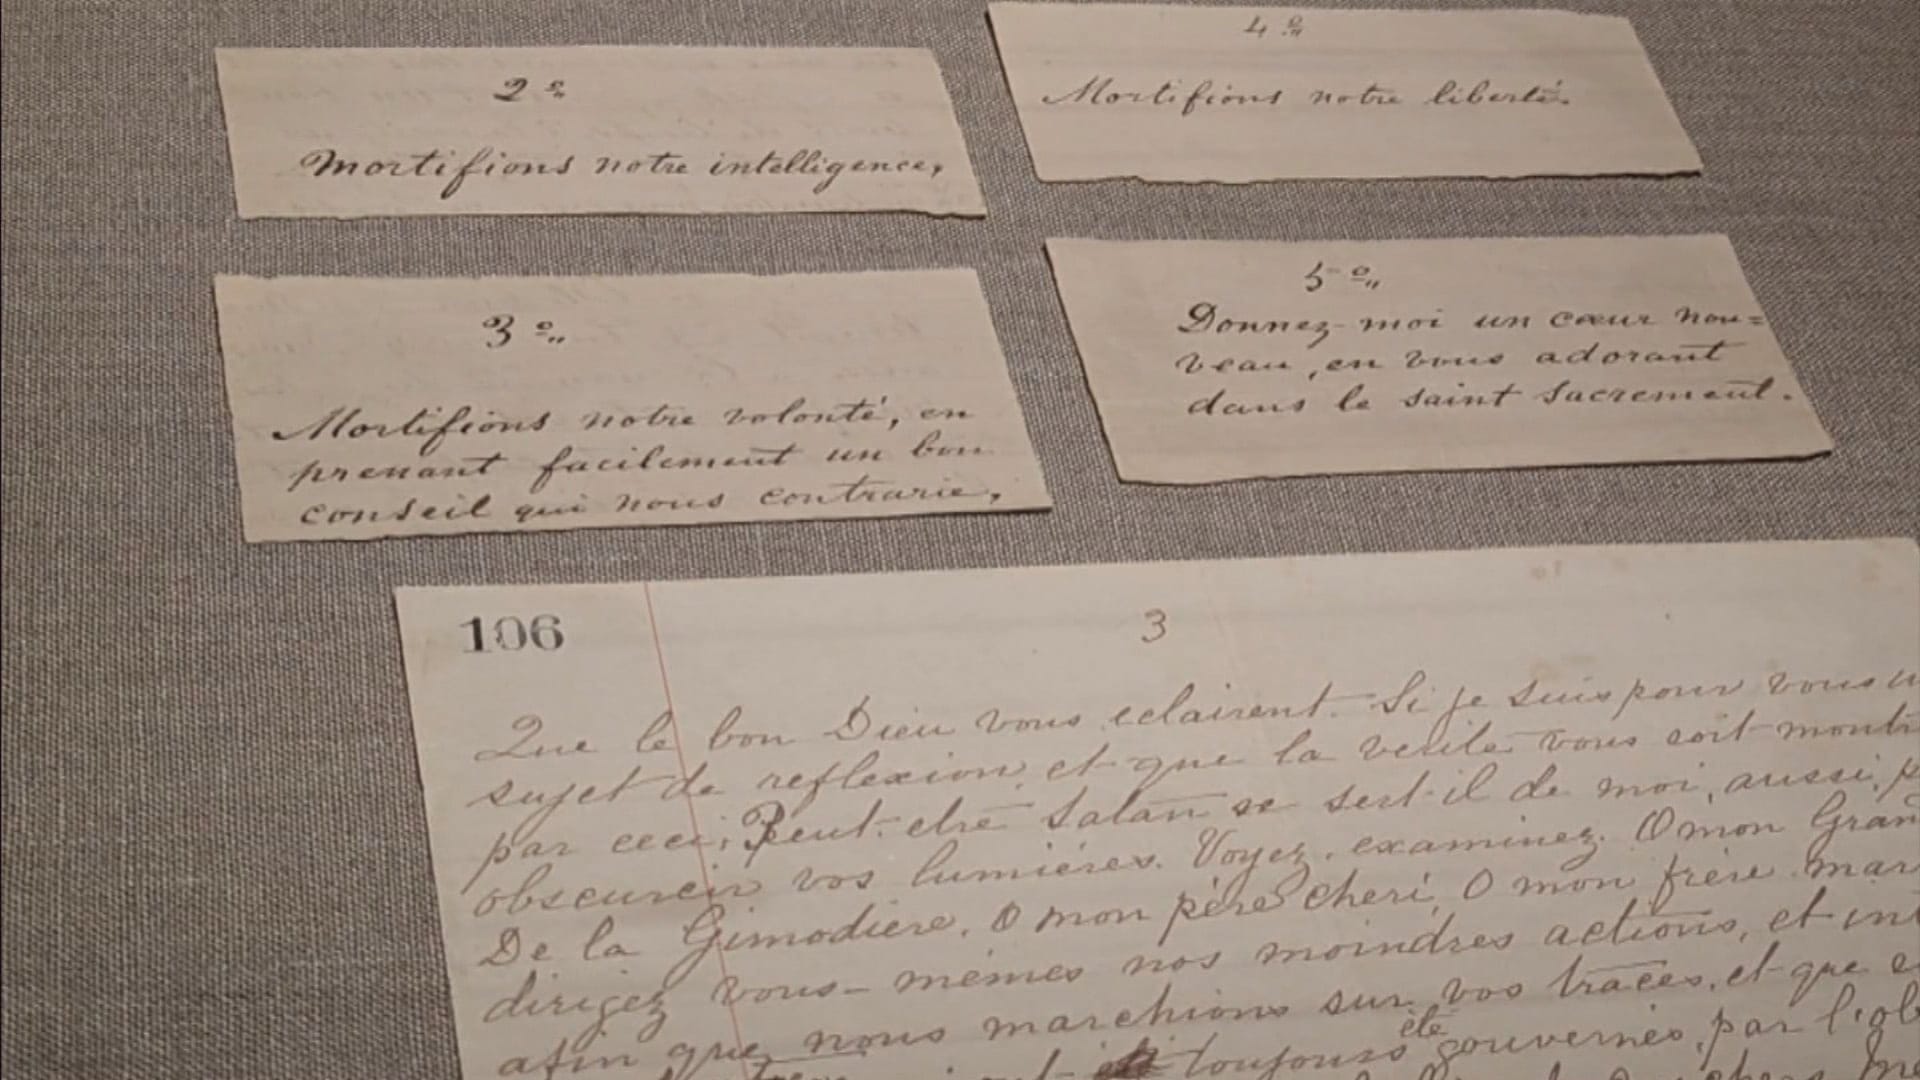 2º
Mortifions notre intelligence,
4º
Mortifions notre liberté.
3º
Mortifions notre volonté, en
prenant facilement un bon
conseil qui nous contrarie,
5º
Donnez-moi un cœur nou=
veau, en vous adorant
dans le saint Sacrement.
106
3
Que le bon Dieu vous eclairent. Si je suis pour vous
sujet de reflexion, et que la verite vous soit
par ceci; Peut-etre Satan se sert-il de moi, aussi,
obscurcir vos lumiéres. Voyez, examinez. O mon
De la Gimodiere, O mon père cheri, O mon frère
dirigez vous-mêmes nos moindres actions, et
afin que nous marchions sur vos traces, et que
toujours été gouvernés, par